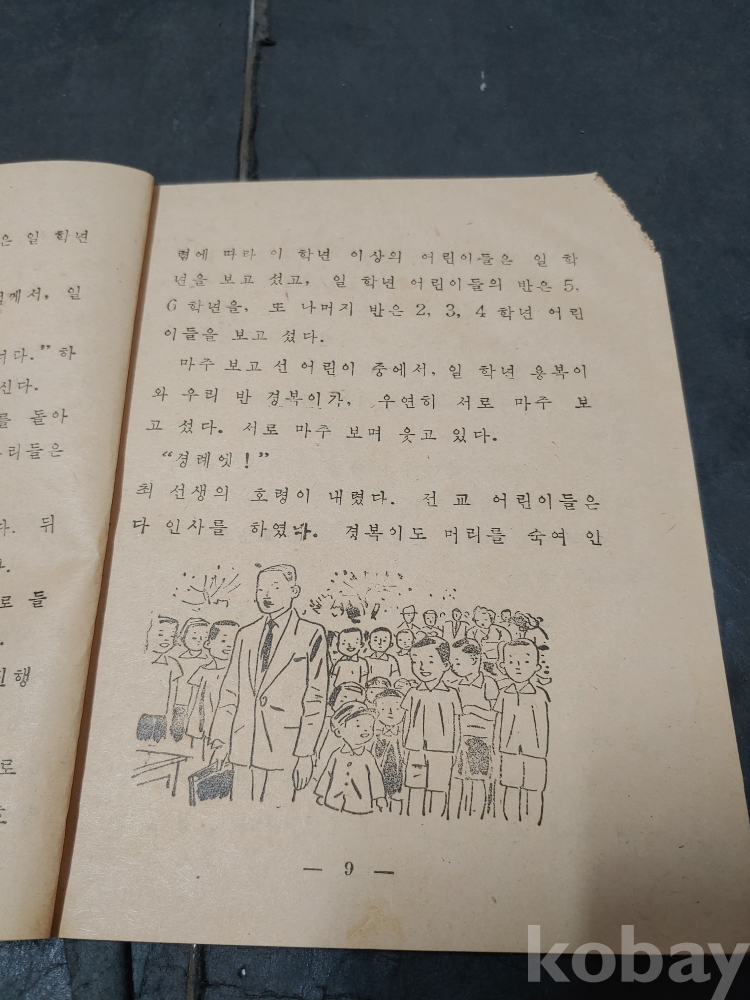 은 일 학년
께서, 일
다." 하
신다.
를 돌아
리들은
다. 뒤
다.
로 들
진행
로
호
령에 따라 이 학년 이상의 어린이들은 일 학
년을 보고 섰고, 일 학년 어린이들의 반은 5,
6 학년을, 또 나머지 반은 2, 3, 4 학년 어린
이들을 보고 섰다.
마주 보고 선 어린이 중에서, 일 학년 용복이
와 우리 반 경복이가, 우연히 서로 마주 보
고 섰다. 서로 마주 보며 웃고 있다.
"경례엣!"
최 선생의 호령이 내렸다. 전 교 어린이들은
다 인사를 하였다. 경복이도 머리를 숙여 인
— 9 —
kobay